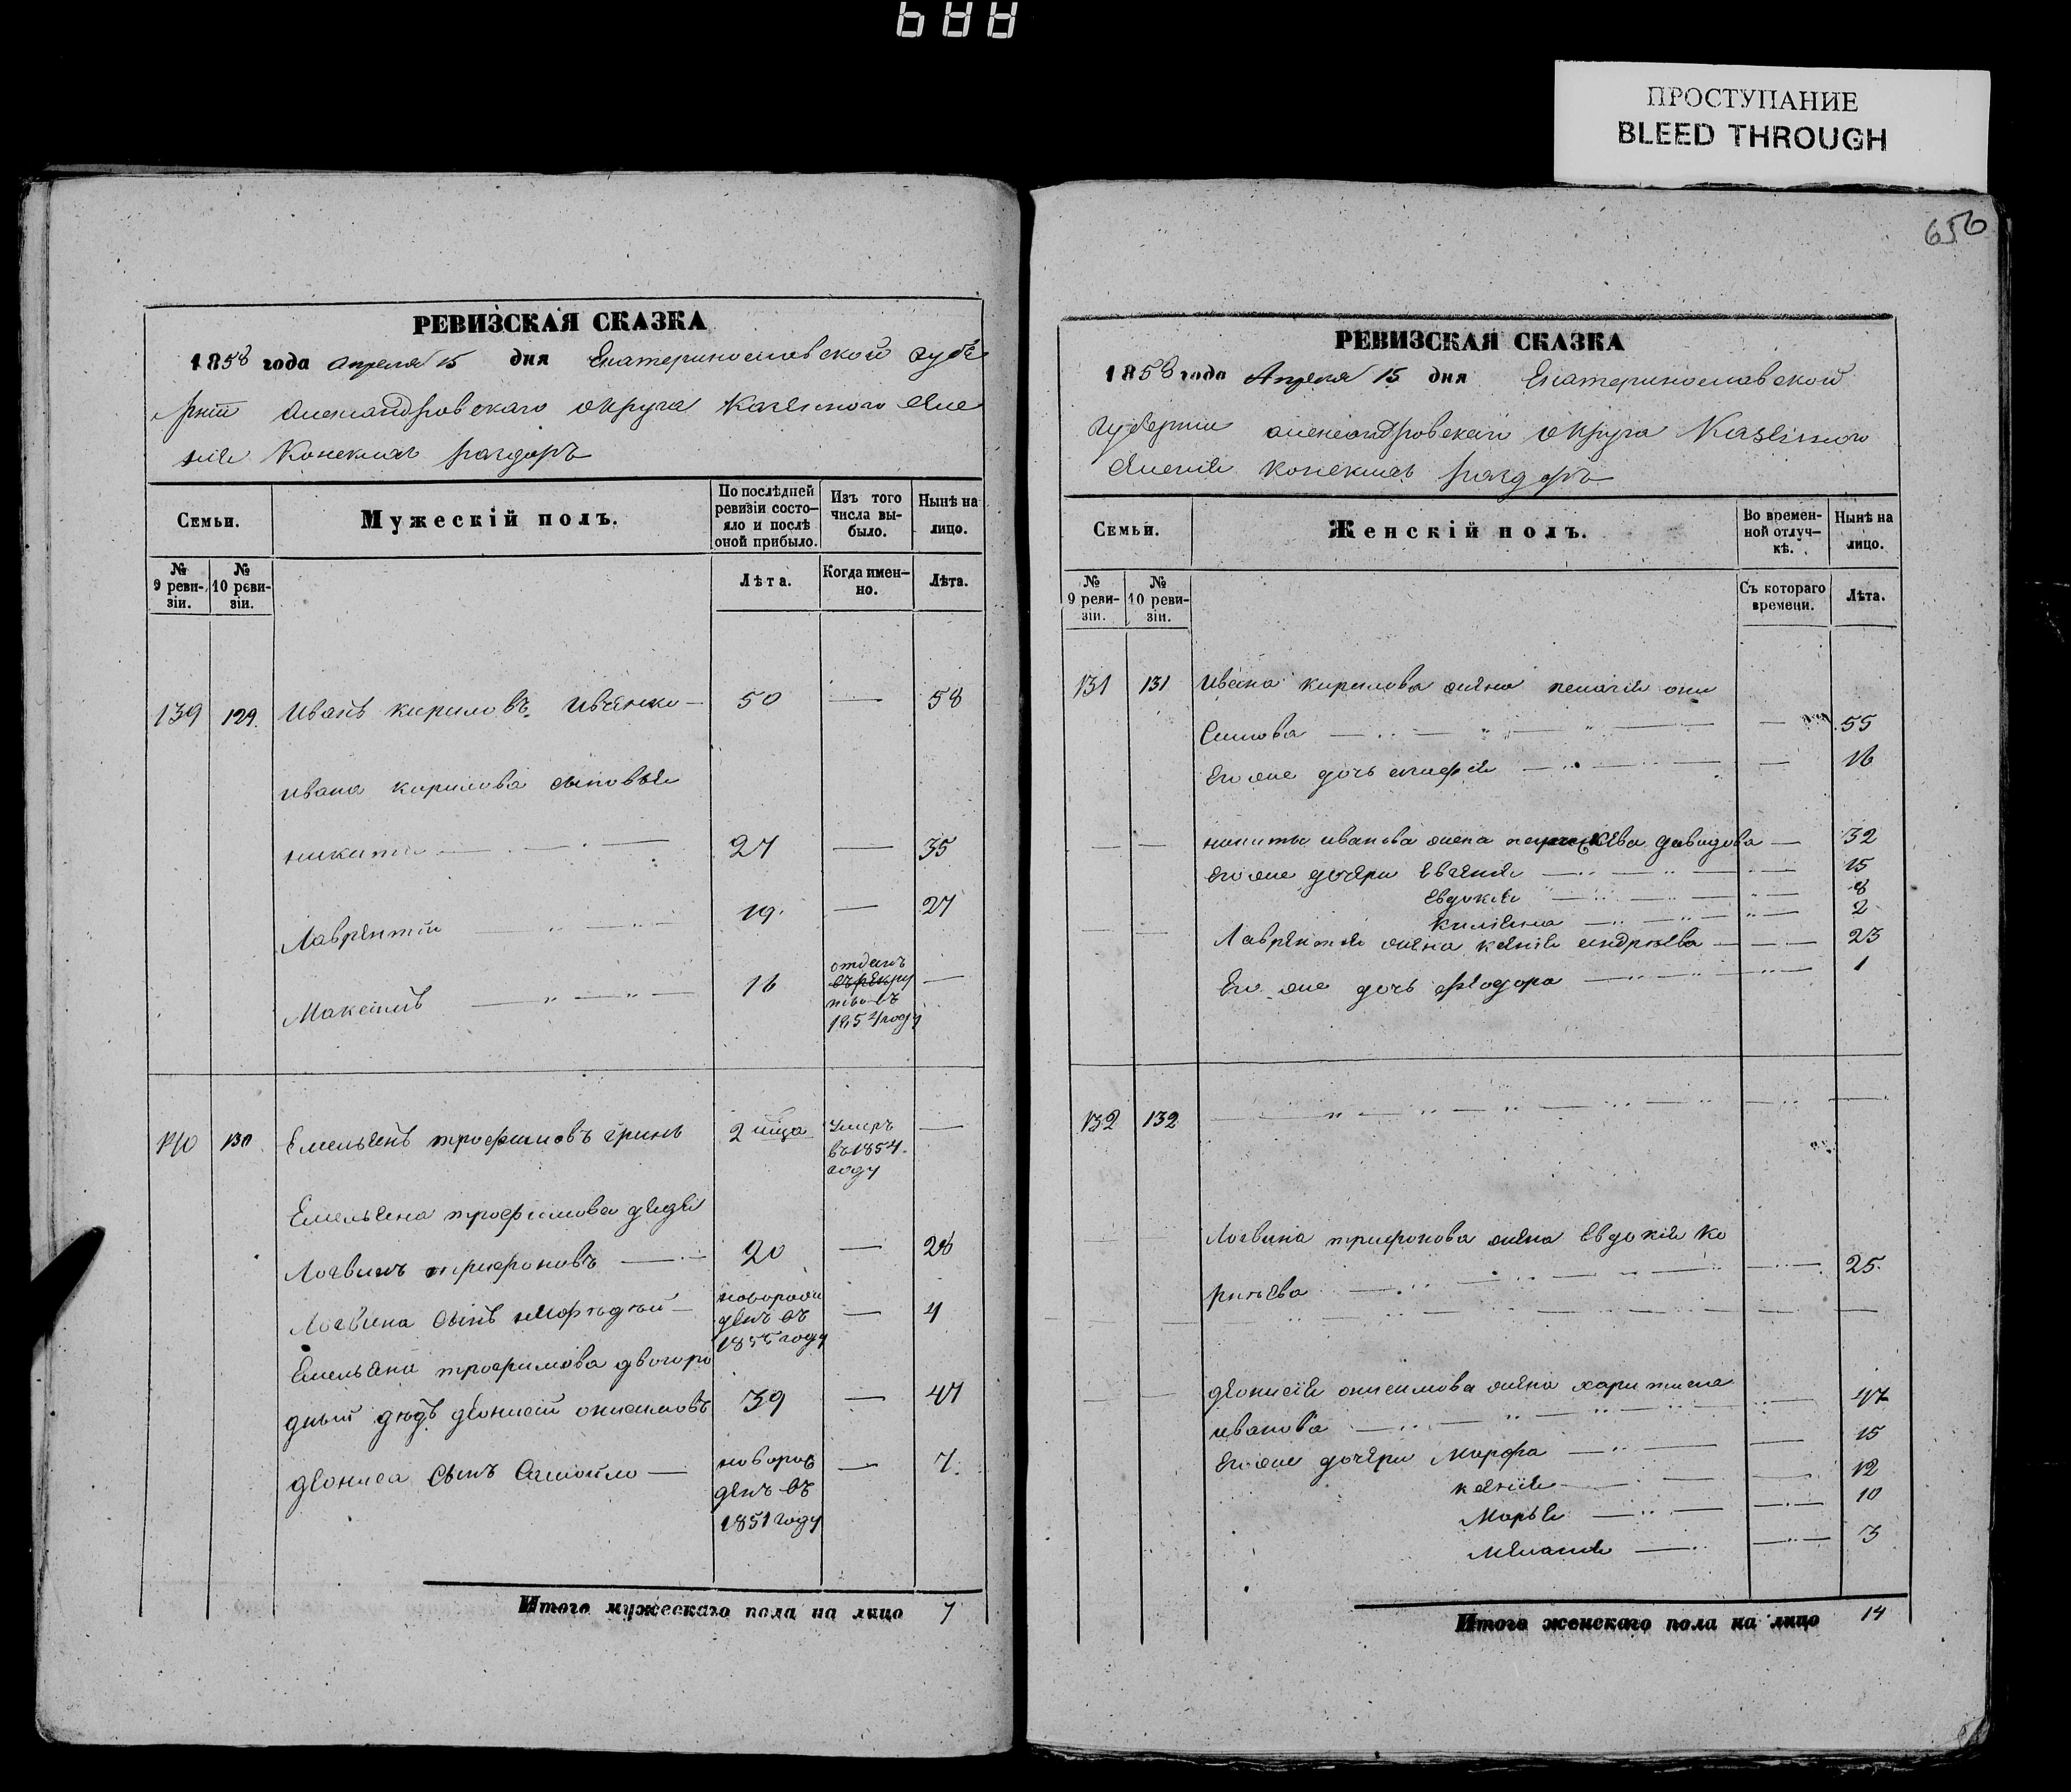 688
ПРОСТУПАНИЕ
BLEED THROUGH
656
РЕВИЗСКАЯ СКАЗКА
1858 года Апреля 15 дня Екатеринославской губе
рніи Александровскаго округа Казенного Име
нія Конскихъ раздоръ
Семьи.
Мужескій полъ.
По послѣдней ревизіи состо-яло и послѣ оной прибыло.
Изъ того числа вы-было.
Нынѣ на лицо.
№ 9 реви-зіи.
№ 10 реви-зіи.
Лѣта.
Когда имен-но.
Лѣта.
139 129. Иванъ кириловъ Иванко — 50 — 58
ивана кирилова сыновья
никита — 27 — 35
Лаврентій — 19. — 27
Максимъ — 16 отданъ въ рекру
тво въ
1854 году —
140 130 Емельянъ трофимовъ гринь 2 мца умеръ
въ 1854.
году —
Емельяна трофимова дядя
Логвинъ трифоновъ — 20 — 28
Логвина сынъ — новорож
денъ въ
1855 году — 4
Емельяна трофимова двоюро
дный дѣдъ деонисій онисимовъ 39 — 47
деониса сынъ Самойло — новорож
денъ въ
1851 году — 7.
Итого мужескаго пола на лицо 7
РЕВИЗСКАЯ СКАЗКА
1858 года Апреля 15 дня Екатеринославской
Губерніи александровскаго округа Казенного
Именія конскихъ раздоръ
Семьи.
Женскій полъ.
Во времен-ной отлуч-кѣ.
Нынѣ на лицо.
№ 9 реви-зіи.
№ 10 реви-зіи.
Съ котораго времени.
Лѣта.
131 131 Ивана кирилова жена пелагея они
симова — 55
Его же дочь агафія — 16
— — никиты иванова жена давидова — 32
Его же дочери Евгенія — 15
Евдокія — 8
Килиена — 2
— — Лаврентія жена ксенія андреева — 23
Его же дочь федора — 1
132 132 —
— Логвина трифонова жена Евдокія ко
рнѣева — 25.
— — деонисія онисимова жена харитина
иванова — 47
Его же дочери Марфа — 15
ксенія — 12
Марья — 10
Меланія — 3
Итого женскаго пола на лицо 14